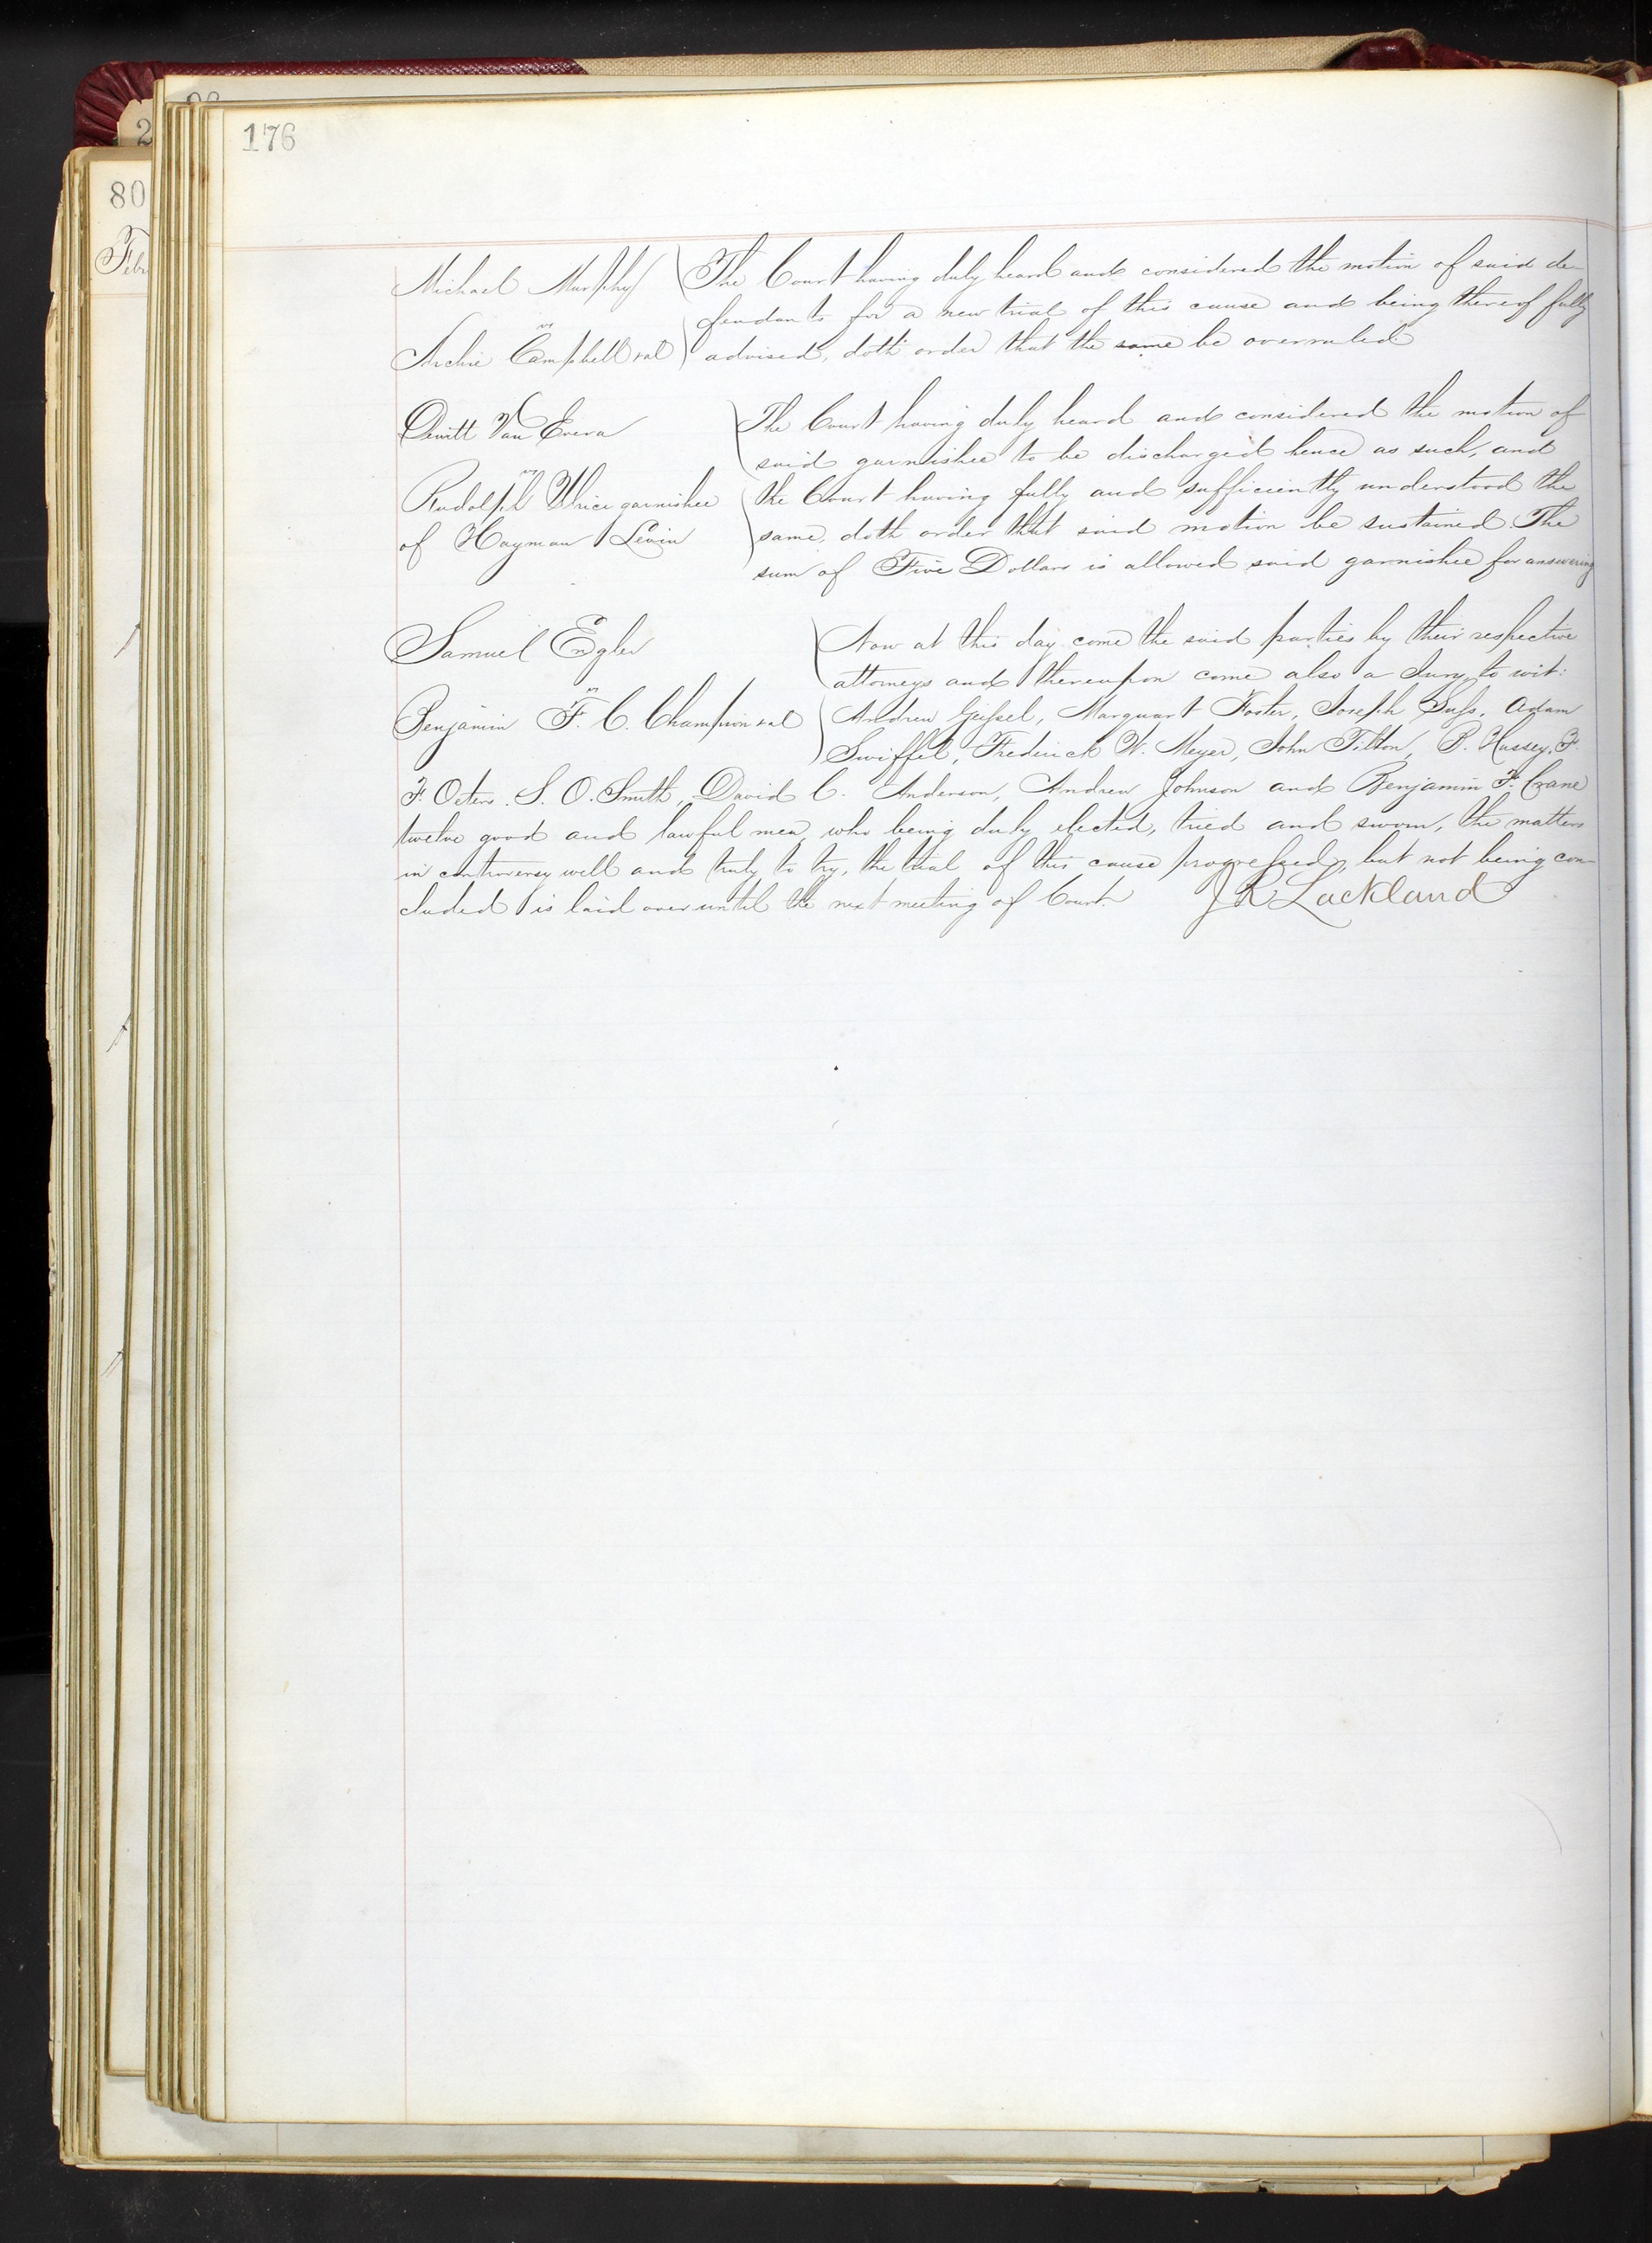 176
80
2
Febr
Michael Murphy
vs
Archie Campbell et al
The Court having duly heard and considered the motion of said de-
fendants for a new trial of this cause and being thereof fully
advised, doth order that the same be overruled.
Dewitt Van Evera
vs
Rudolph Ulrici garnishee
of Hayman Levin
The Court having duly heard and considered the motion of
said garnishee to be discharged hence as such, and
the Court having fully and sufficiently understood the
same, doth order that said motion be sustained. The
sum of Five Dollars is allowed said garnishee for answering
Samuel Engler
vs
Benjamin F. C. Champion et al
Now at this day come the said parties by their respective
attorneys and thereupon come also a Jury, to wit:
Andrew Geissel, Marquart Foster, Joseph Suss, Adam
Swiffel, Frederick W. Meyer, John Tilton, P. Hussey, F.
F. Oeters, S. O. Smith, David C. Anderson, Andrew Johnson and Benjamin F. Crane
twelve good and lawful men, who being duly elected, tried and sworn, the matters
in controversy well and truly to try, the trial of this cause progressed, but not being con-
cluded is laid over until the next meeting of Court.
J R Lackland